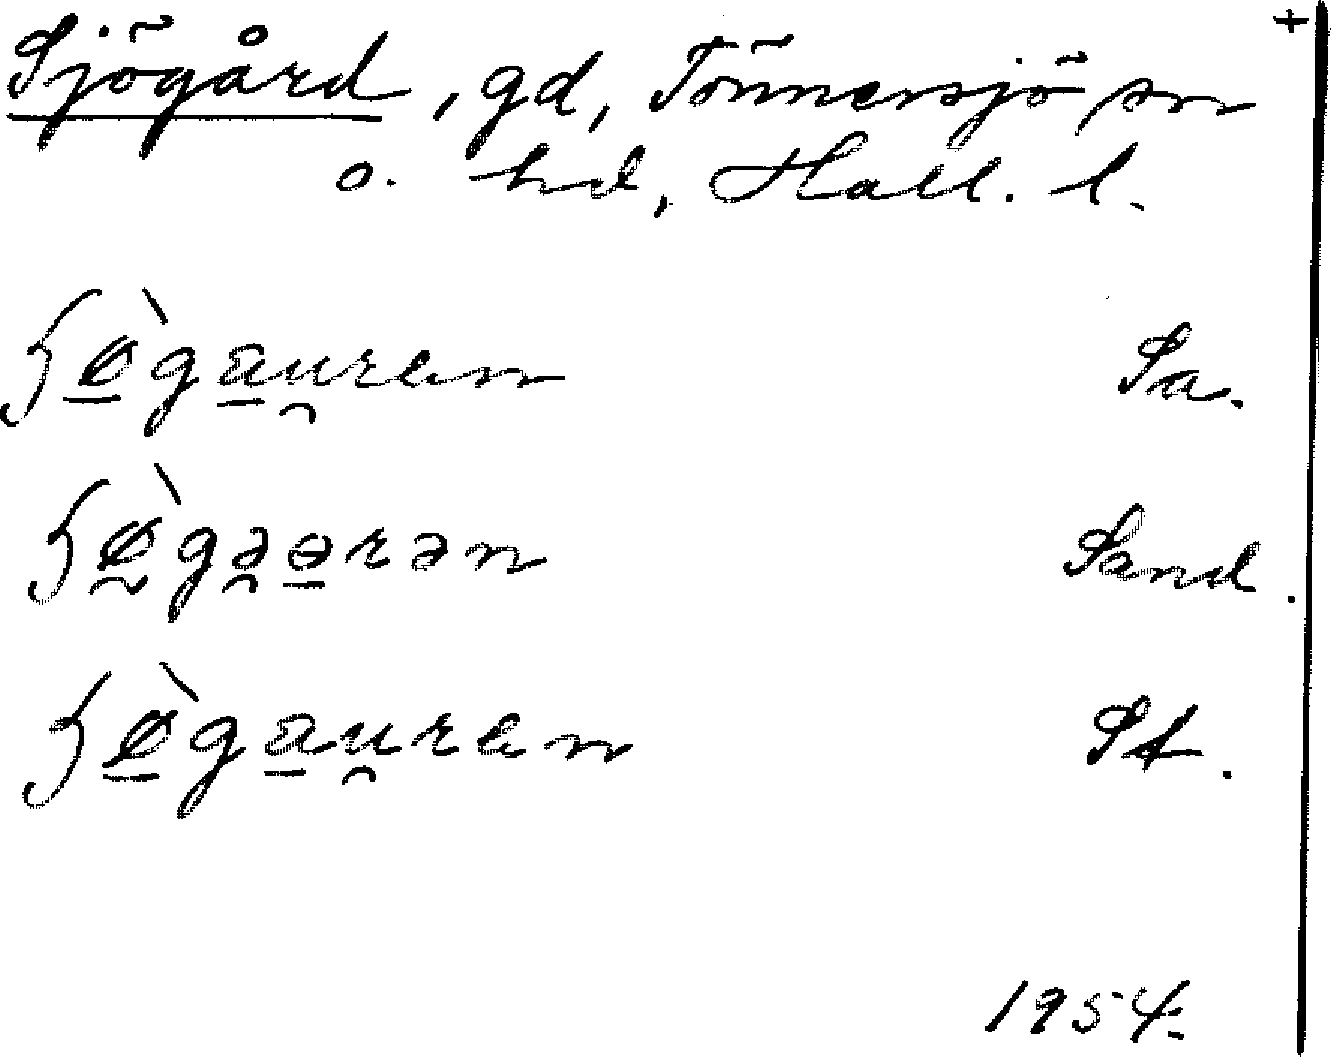 +
Sjögård, gd, Tönnersjö sn
o. hd, Hall. l.
ɧø̲̀ga̲u̯ren Sa.
ɧø̰̀gə̯ɵ̲rən Sand.
ɧø̲̀ga̲u̯ren St.
1954.